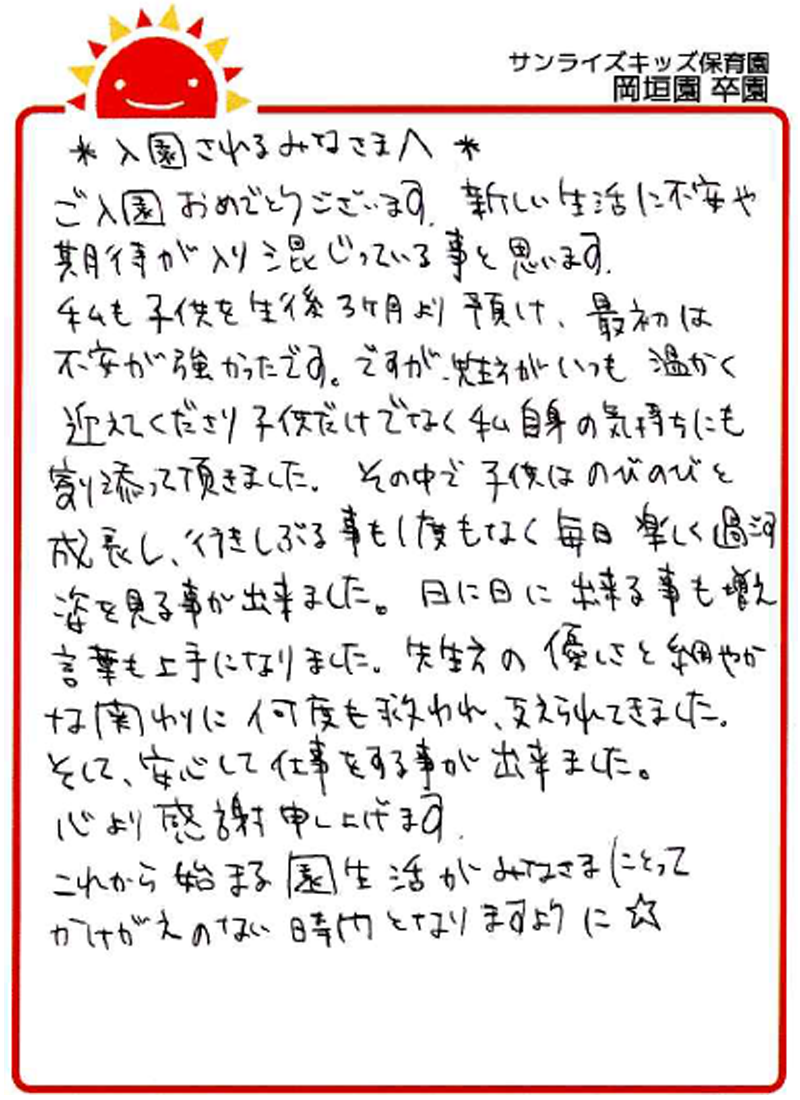 サンライズキッズ保育園
岡垣園 卒園
* 入園されるみなさまへ *
ご入園おめでとうございます。新しい生活に不安や
期待が入り混じっている事と思います。
私も子供を生後3ケ月より預け、最初は
不安が強かったです。ですが、先生方がいつも温かく
迎えてくださり子供だけでなく私自身の気持ちにも
寄り添って頂きました。その中で子供はのびのびと
成長し、行きしぶる事も1度もなく毎日楽しく過ごす
姿を見る事が出来ました。日に日に出来る事も増え
言葉も上手になりました。先生方の優しさと細やか
な関わりに何度も救われ、支えられてきました。
そして、安心して仕事をする事が出来ました。
心より感謝申し上げます。
これから始まる園生活がみなさまにとって
かけがえのない時間となりますように☆